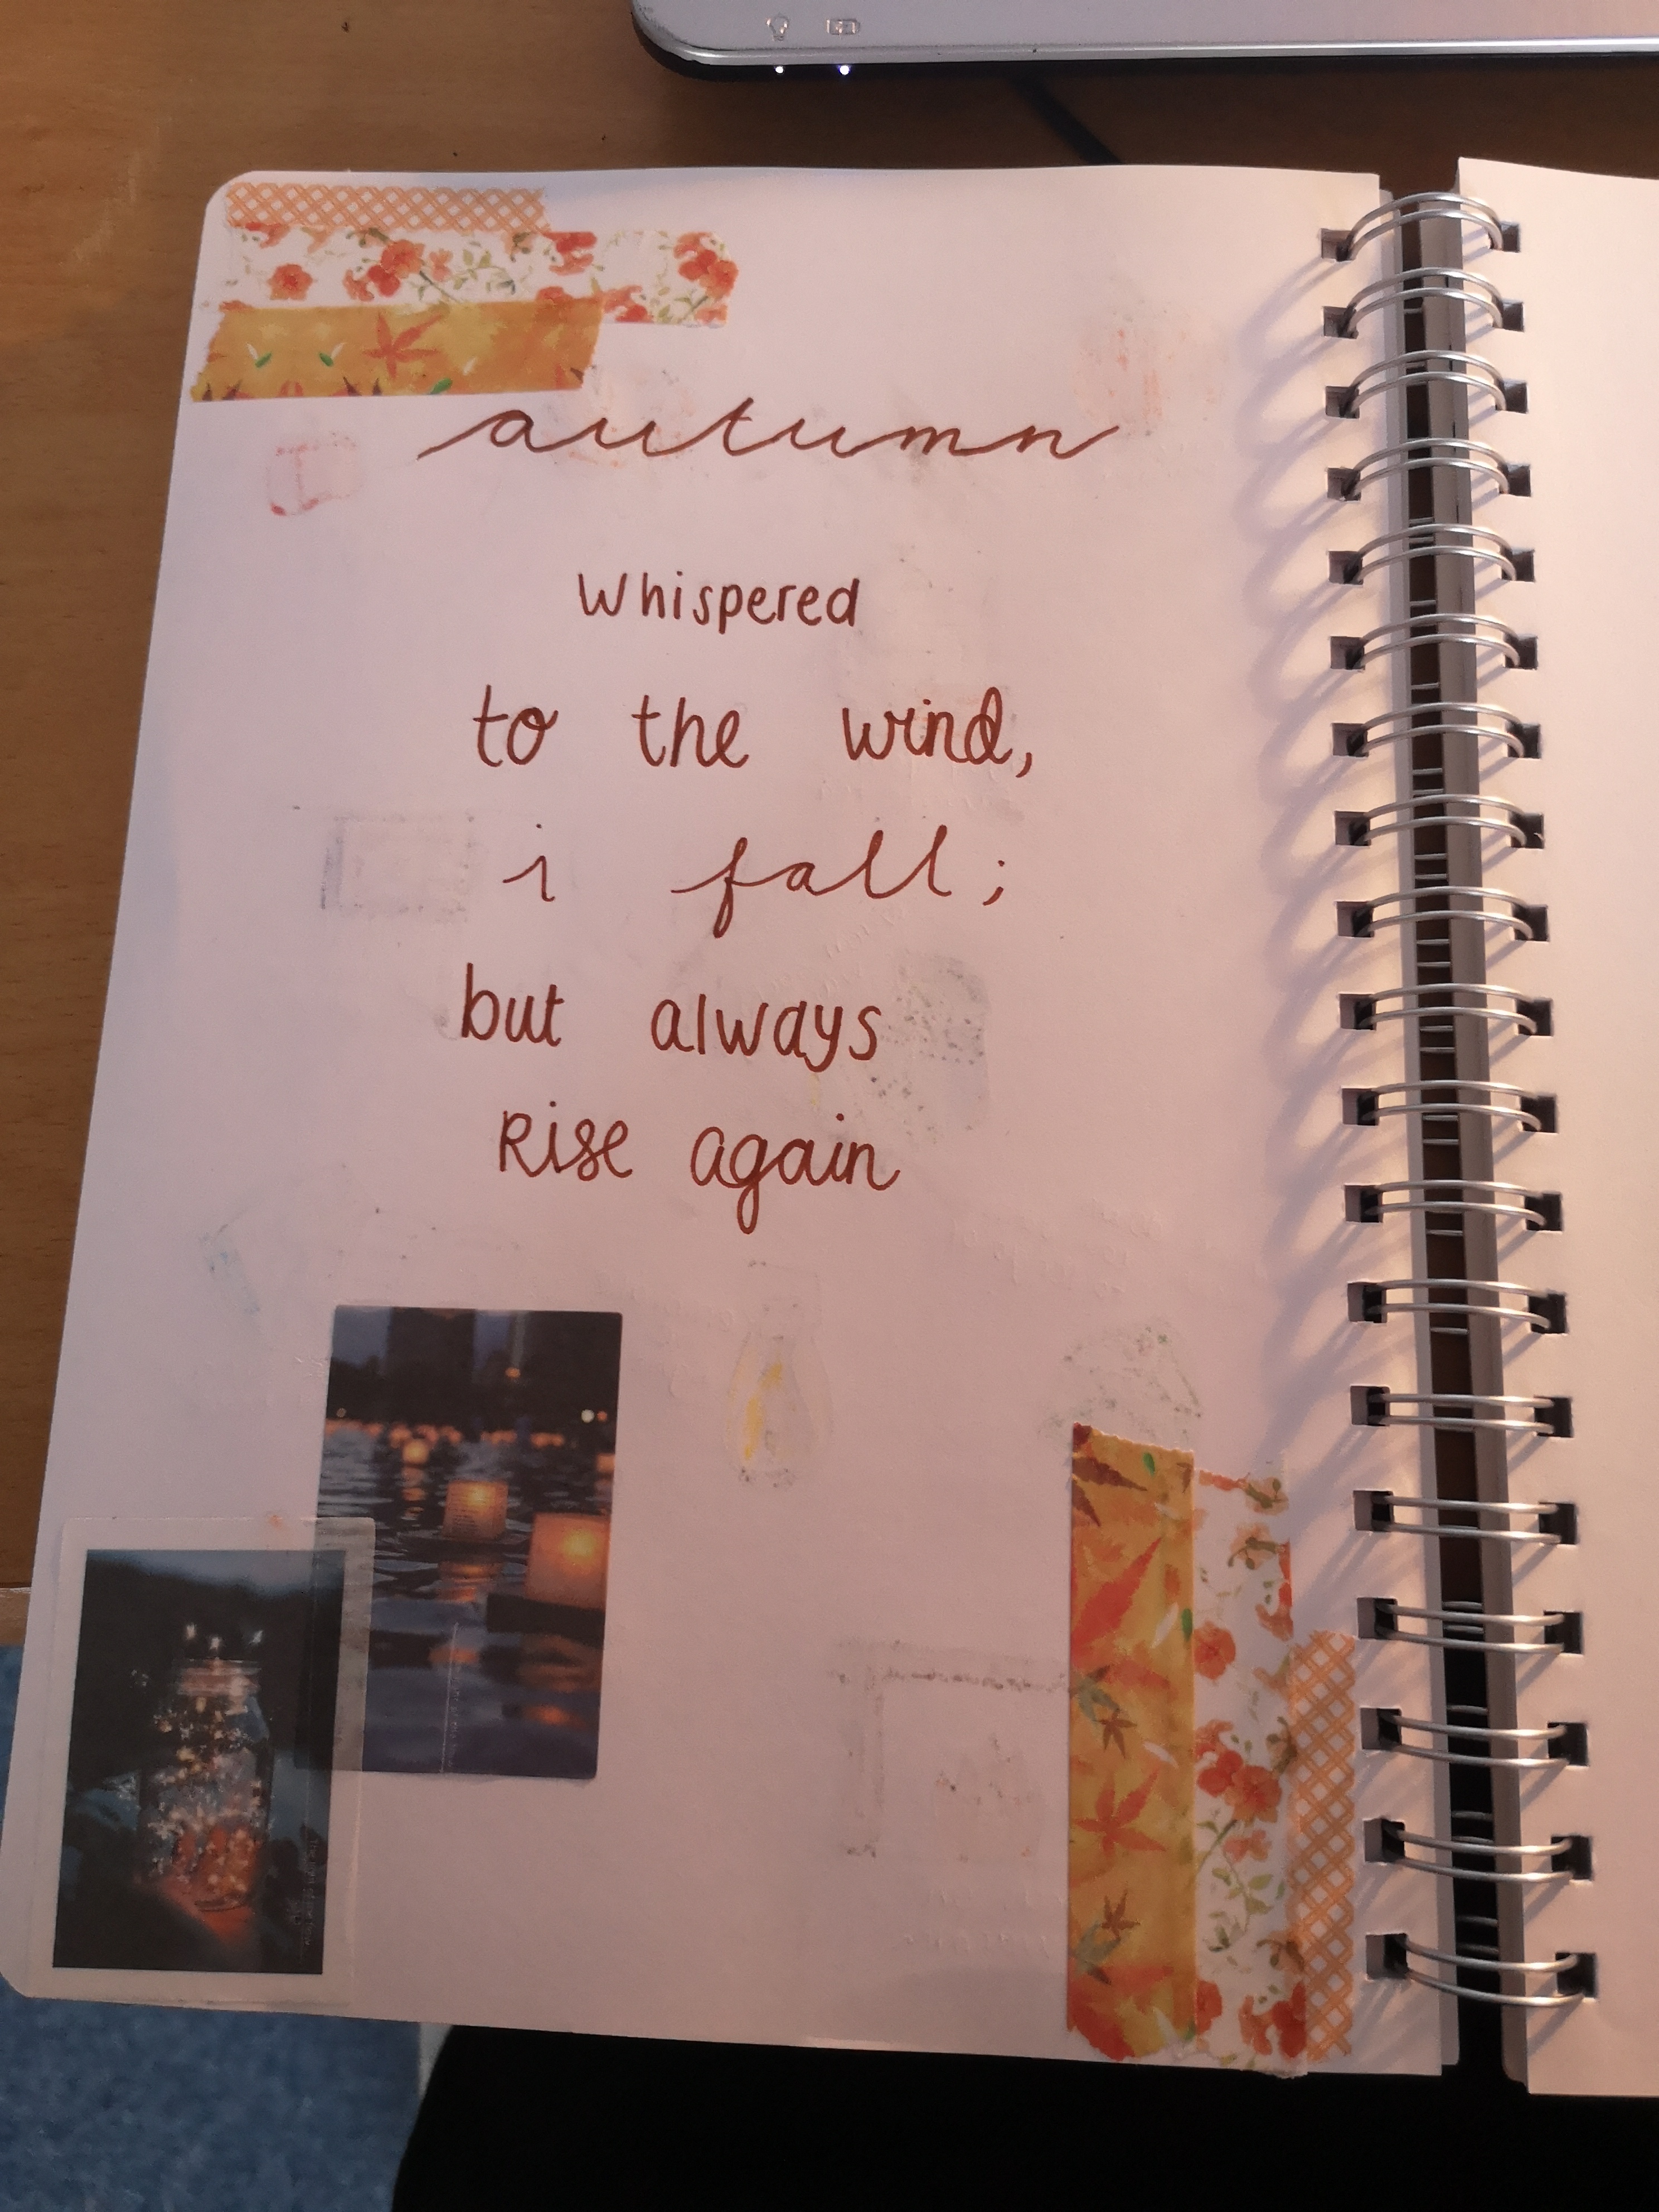 autumn
Whispered
to the wind,
i fall;
but always
Rise again